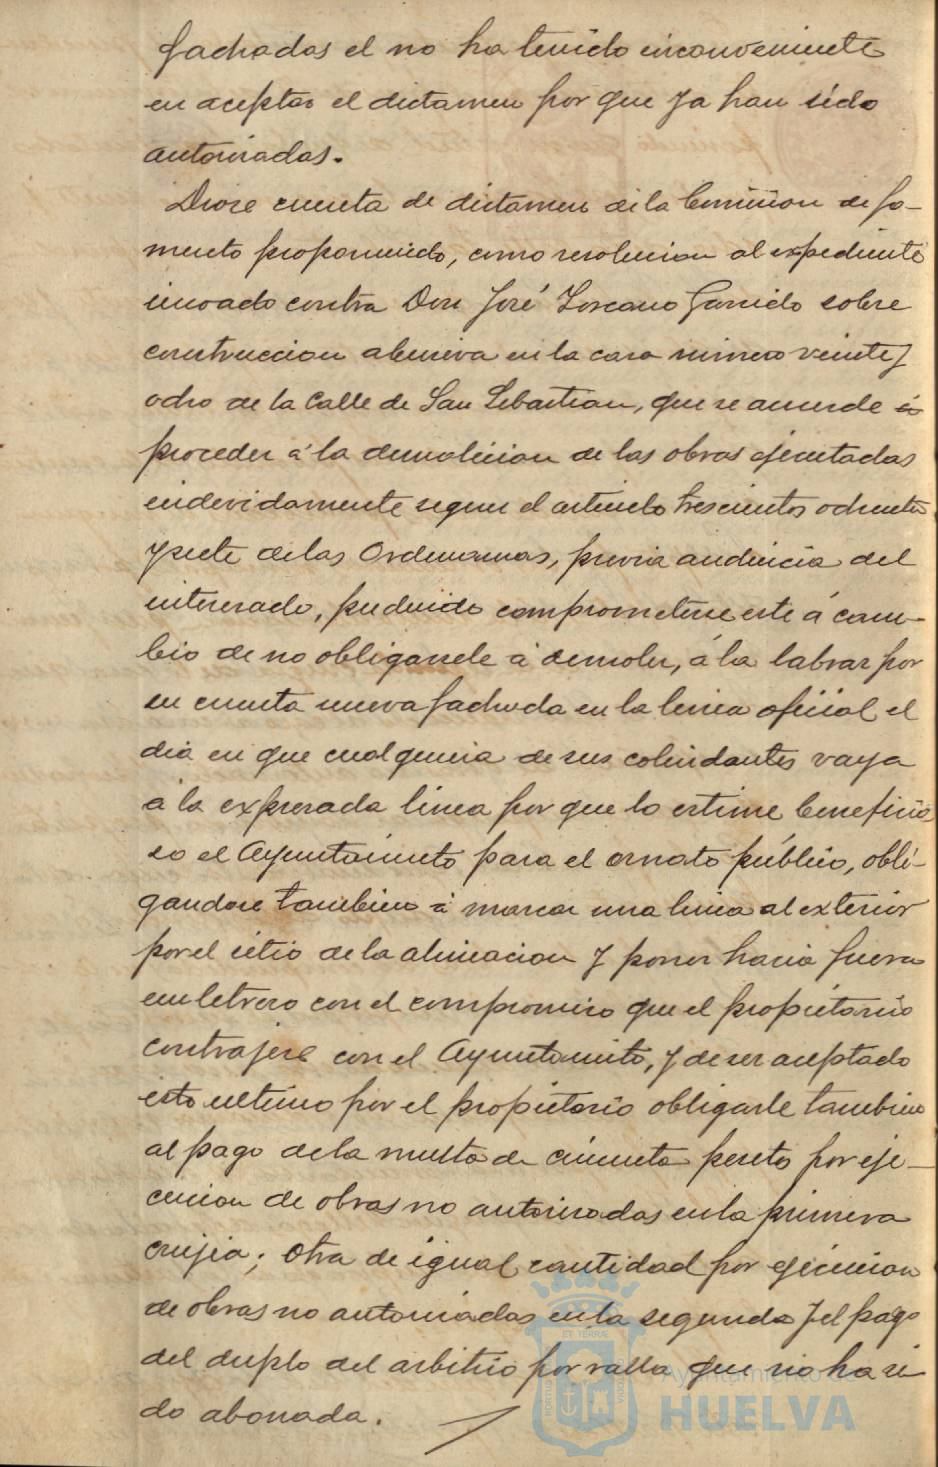 fachadas el no ha tenido inconveniente
en aceptar el dictamen por que ya han sido
autorizadas.
Diose cuenta de dictamen de la Comision de fo-
mento proponiendo, como resolucion al expediente
incoado contra Don José Lorcano Garrido sobre
construccion abusiva en la casa número veinte y
ocho de la Calle de San Sebastian, que se acuerde
proceder á la demolicion de las obras ejecutadas
indevidamente segun el artículo trescientos ochenta
y siete de las Ordenanzas, previa audiencia del
interesado, pudiendo comprometerse este á cam-
bio de no obligarsele á demoler, á la labrar por
su cuenta nueva fachada en la linea oficial el
dia en que cualquiera de sus colindantes vaya
á la expresada línea por que lo estime beneficio
so el Ayuntamiento para el ornato público, obli-
gandose tambien á marcar una linea al exterior
por el sitio de la alineacion y poner hacia fuera
un letrero con el compromiso que el propietario
contrajese con el Ayuntamiento, y de ser aceptado
esto ultimo por el propietario obligarle tambien
al pago de la multa de cincuenta pesetas por eje-
cucion de obras no autorizadas en la primera
crujia; otra de igual cantidad por ejecucion
de obras no autorizadas en la segunda y el pago
del duplo del arbitrio por valla que no ha si-
do abonada.
ET TERRÆ
Ayuntamiento de
HUELVA